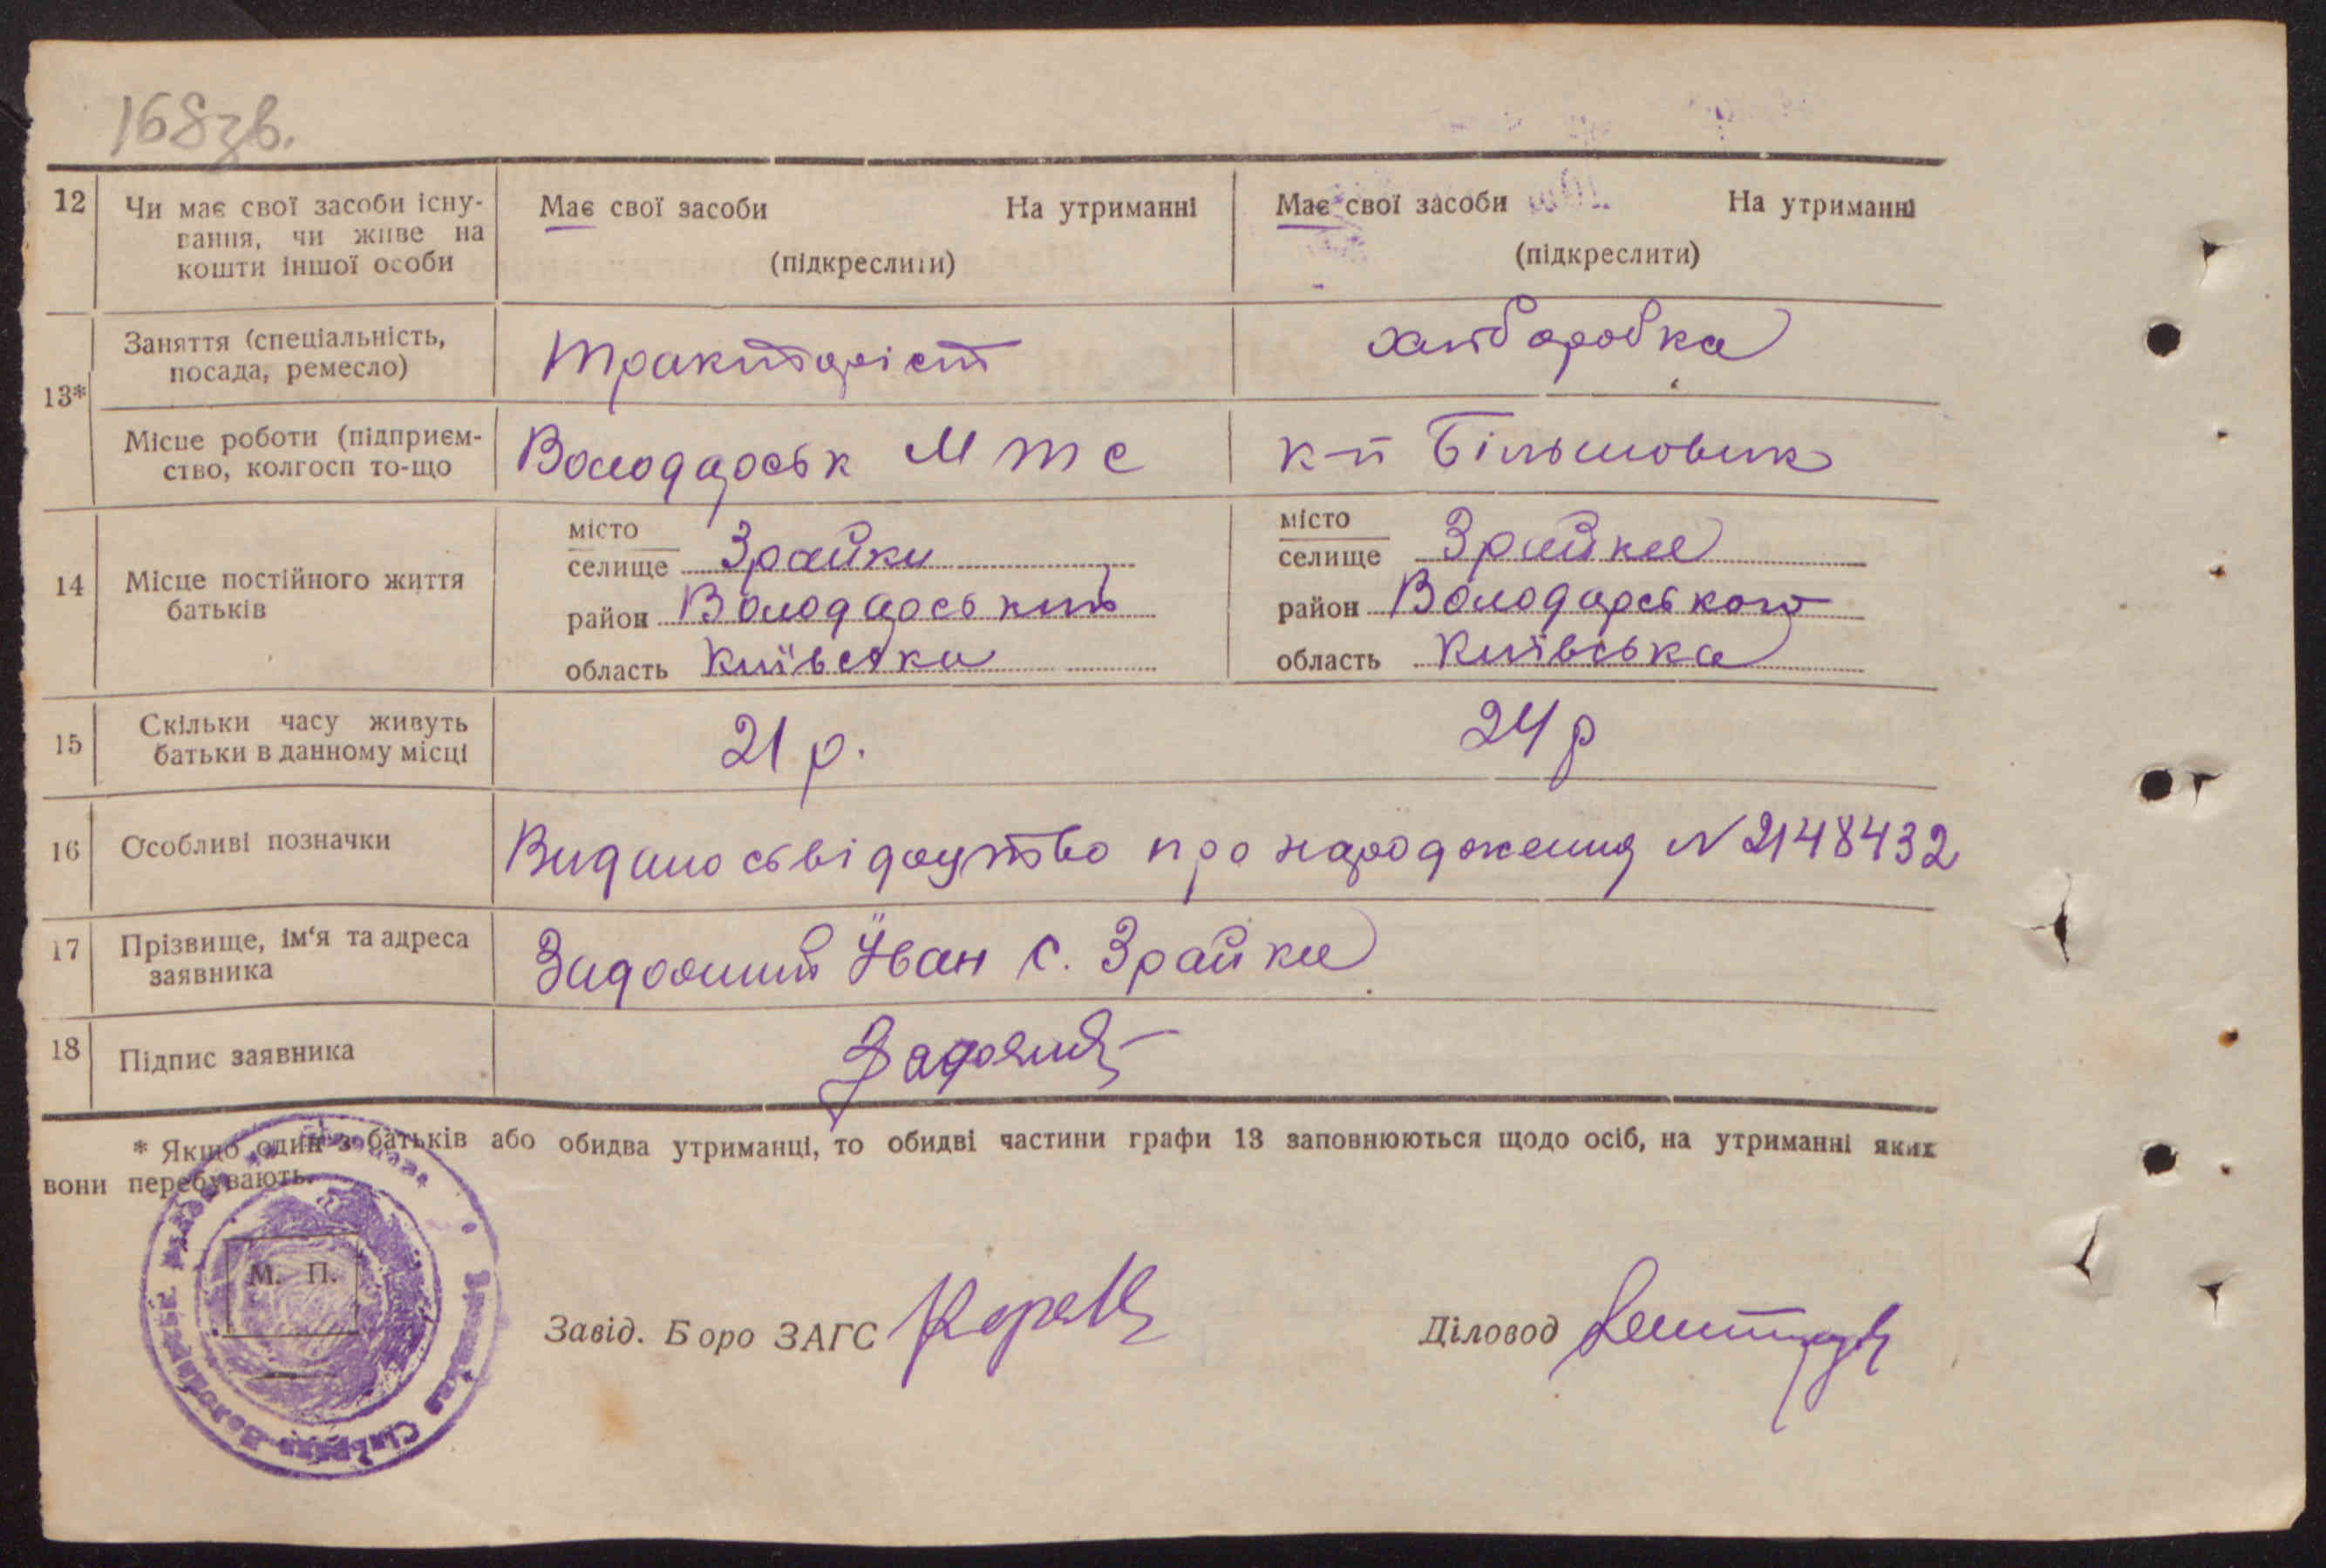 168зв.
12 Чи має свої засоби існу- Має свої засоби На утриманні Має свої засоби На утриманні
вання, чи живе на
кошти іншої особи (підкреслити) (підкреслити)
13* Заняття (спеціальність, Тракторіст хліборобка
посада, ремесло)
Місце роботи (підприєм- Володарськ М Т С к-п Більшовик
ство, колгосп то-що
14 Місце постійного життя місто місто
батьків селище Зрайки селище Зрайки
район Володарський район Володарського
область Київська область Київська
15 Скільки часу живуть 21 р. 24 р
батьки в данному місці
16 Особливі позначки Видано сьвідоцтво про народження N 2148432
17 Прізвище, ім'я та адреса Задояний Їван с. Зрайки
заявника
18 Підпис заявника Задояний
* Якщо один з батьків або обидва утриманці, то обидві частини графи 13 заповнюються щодо осіб, на утриманні яких
вони перебувають.
М. П.
Завід. Бюро ЗАГС Діловод